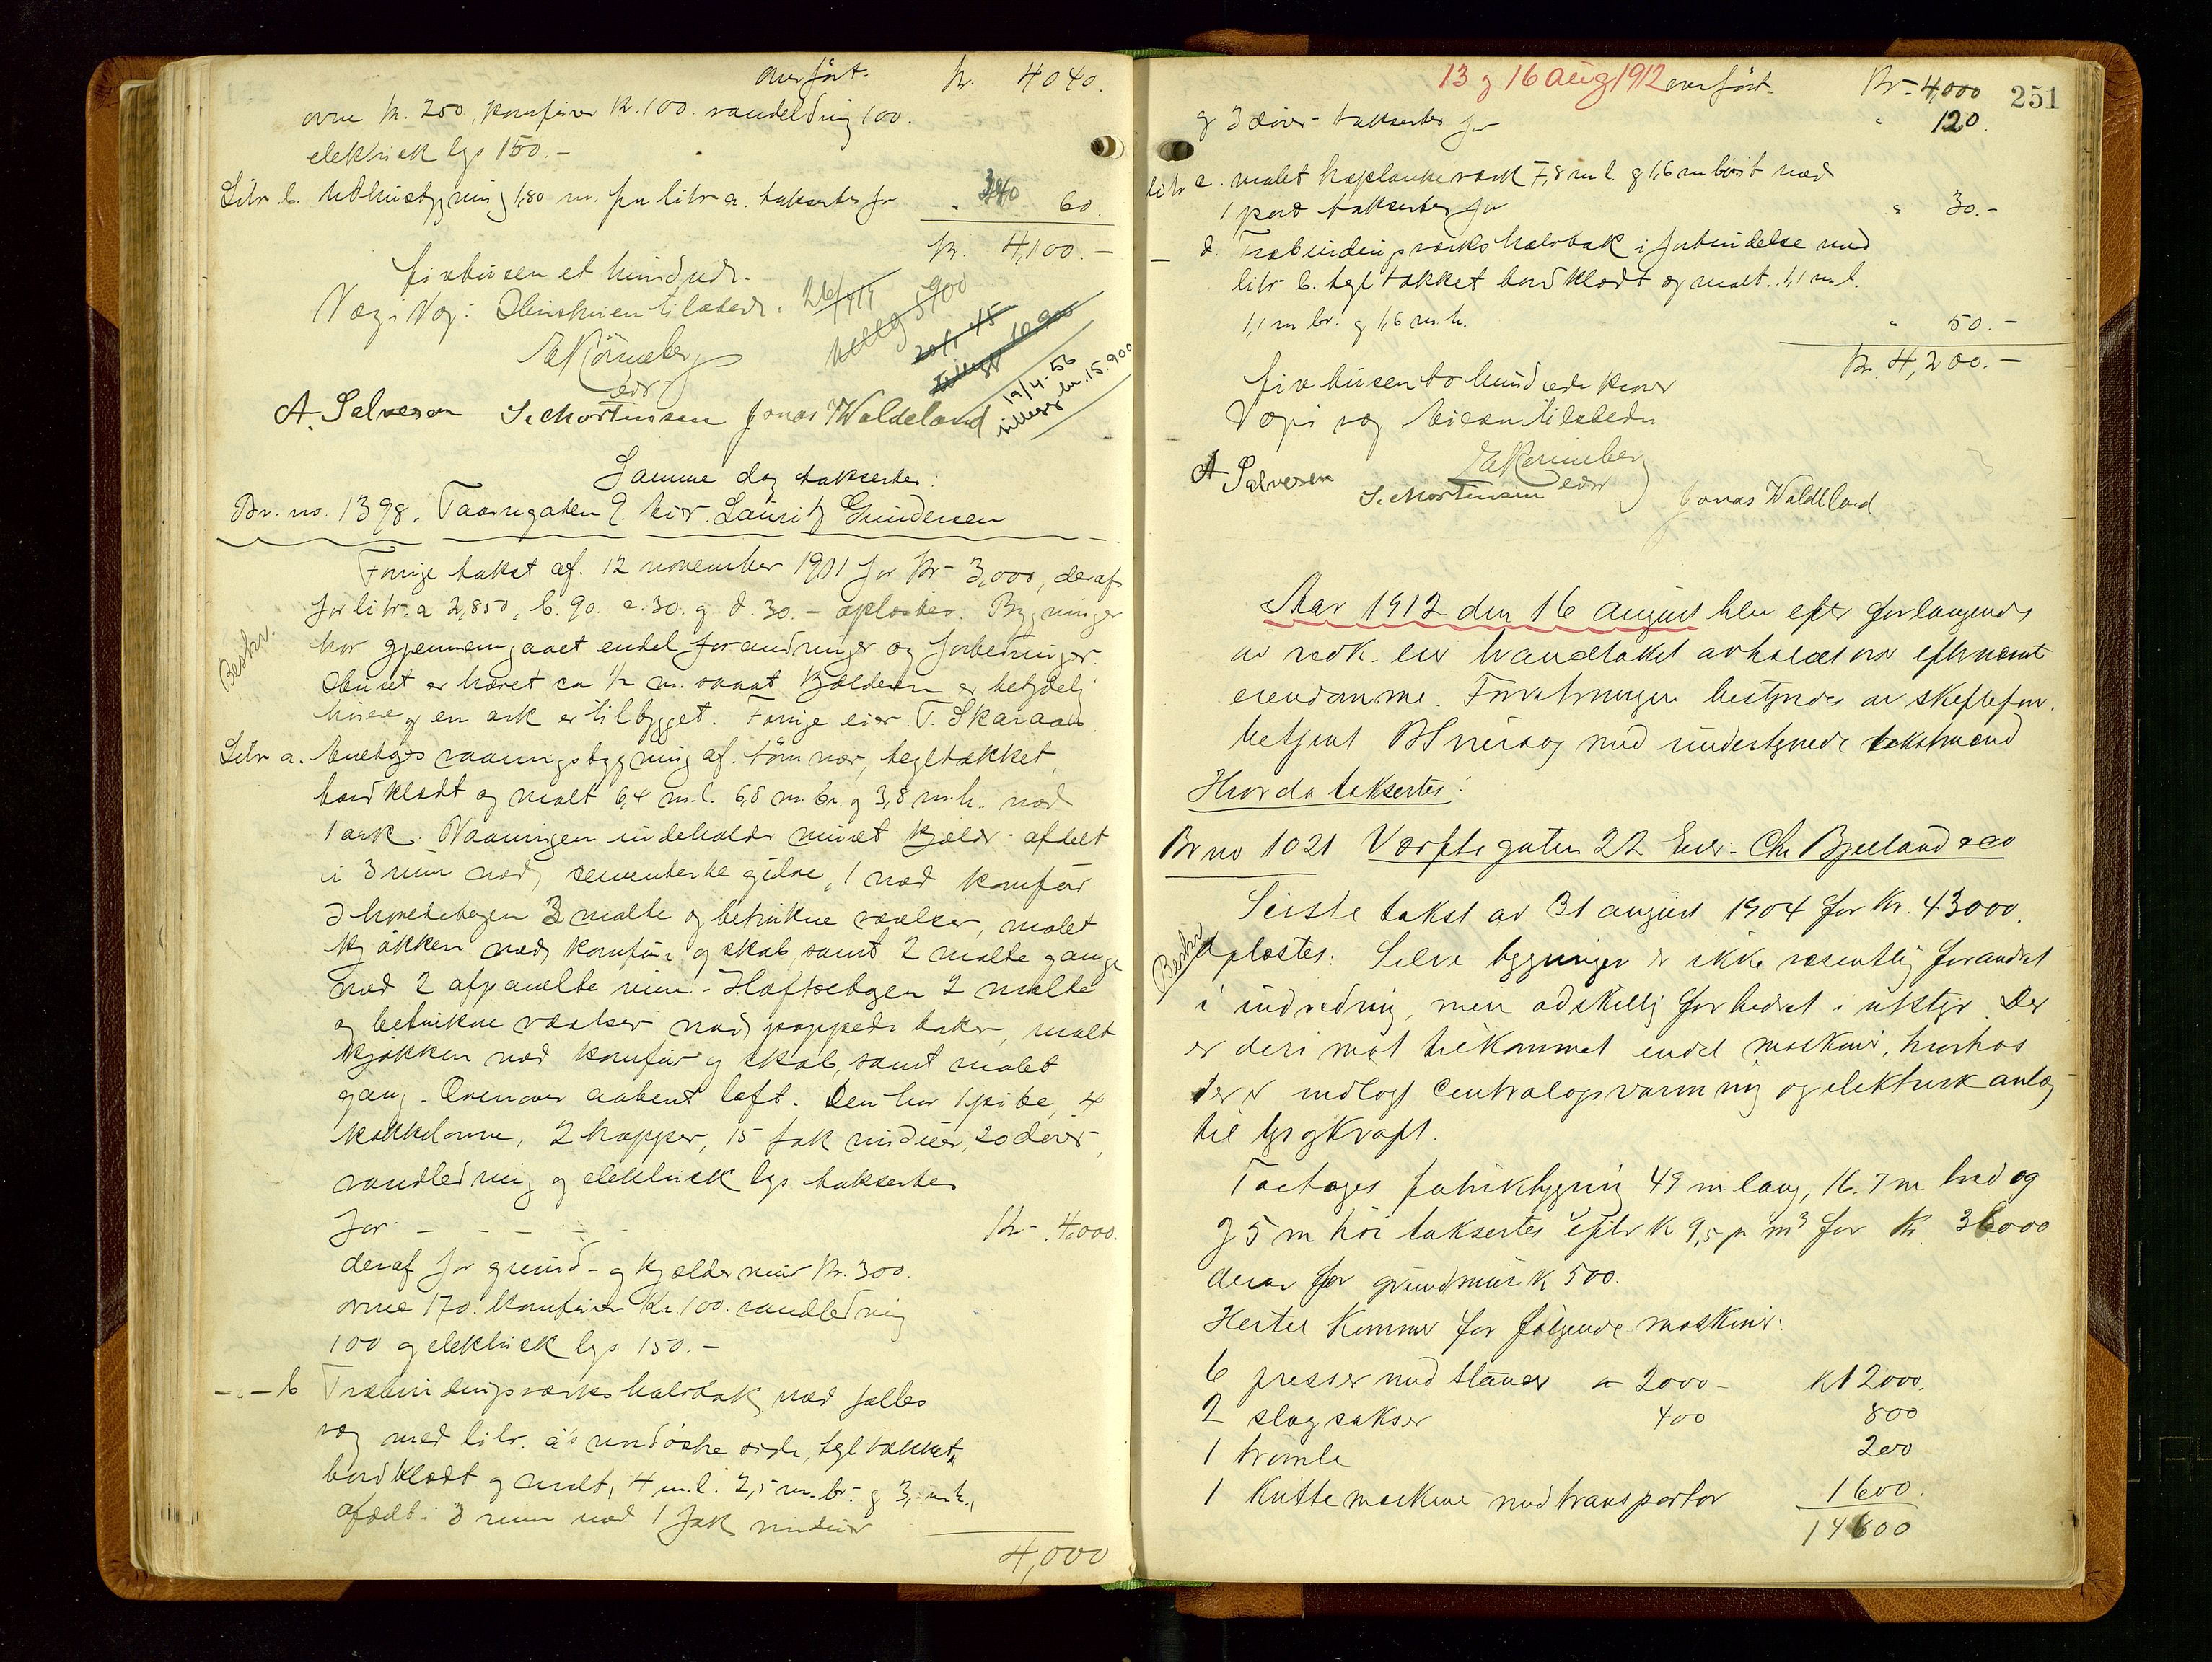 overført. Kr. 4040.
ovne Kr. 250, komfirer Kr. 100. vandledning 100.
elektrisk lys 150.-
Litr. b. Udhusbygning 1,80 m. fra litr a. takseertes for " 60.
Kr. 4,100.-
firetusen et hundrede.
Væg i Væg: tilstede.
26/
tillegg 5900
20/1 45
Tillegg 10.900
19/4-56
tillegg kr. 15.900
EKönneberg
edr
A. Salvesen S. Mortensen Jonas Waldeland
Samme dag taksertes:
Br. no. 1398. Taarngaten 9. Eier. Lauritz Gundersen
Forrige takst af. 12 november 1901 for Kr- 3,000, deraf
for litr. a 2,850, b. 90. c. 30. g d. 30.- oplæstes. Bygninger
Beskr.
har gjennemgaaet endel forandringer og forbedringer.
Huset er hævet ca 1/2 m. samt Kjælderen er betydelig
høiere og en ark er tilbygget. Forrige eier. T. Skaraas
Litr a. Enetages vaaningsbygning af. tømmer, tegltækket,
bordklædt og malt 6,4 m.l. 6,8 m. br. g 3,8 m.h. med
1 ark. Vaaningen indeholder muret kjælder- afdelt
i 3 rum med sementerte gulve, 1 med komfür
I hovedetagen 3 malte og betrukne værelser, malet
kjøkken med komfüre og skab, samt 2 malte gange
med 2 afpanelte rum. Loftsetagen 2 malte
og betrukne værelser med pappede taker, malt
kjøkken med komfür g skab, samt malet
gang. Ovenover aabent loft. Den har 1 pibe, 4
kakkelovne, 2 trapper, 15 fak vinduer, 20 døre,
vandledning og elektrisk lys taksertes
for - - - - Kr- 4,000.
deraf for grund- og kjældermur Kr. 300.
ovne 170. Komfürer Kr. 100. vandledning
100 og elektrisk lys 150.-
-"- b Træbindingsværks halvtak, med fælles
væg med litr. a's nordøstre side, tegltækket,
bordklædt g malt, 4 m.l. 2,5 m. br. g 3, m.h.,
afdelt i 3 rum med 1 fak vinduer
4,000
13 g 16 aug 1912 overført. Kr- 4,000
251
g 3 døre- taksertes for " 120.
litr c. malet haplankeværk 7,8 m l. g 1,6 m høit med
1 port taksertes for " 30.-
- d. Træbindingsværks halvtak i forbindelse med
litr b. tegltækket bordklædt og malt. 1,1 m.l.
1,1 m br. g 1,6 m.h. " 50.-
Kr. 4,200.-
fire tusen to hundrede kroner
Væg i væg Eieren tilstede
EKönneberg
edr
A Salvesen S. Mortensen Jonas Waldeland
Aar 1912 den 16 august blev efter forlangende
av vedk. eier brandtakst avholdt over efternævnte
eiendomme. Forretningen bestyredes av
betjent med undertegnede takstmænd
Hvorda taksertes:
Br no 1021 Værftsgaten 22 Eier- Chr Bjelland & co
Sidste takst av 31 august 1904 for Kr. 43000.
Beskr
oplæstes. Selve bygningen er ikke væsentlig forandret
i indredning, men adskillig forbedret i utstyr. Der
er derimot tilkommet endel maskiner, hvorhos
der er indlagt centralopvarmning og elektrisk anlæg
til lys og kraft.
Toetages fabrikbygning 49 m lang, 16.7 m bred og
7.5 m høi taksertes efter k 9,5 pr m³ for Kr. 36000
derav for grundmur k 500.
Hertil Kommer for følgende maskiner:
6 presser med stanser a 2000- k 12000.
2 slagsakser 400 800
1 tromle 200
1 Kittemaskine med transportør 1600.
14600